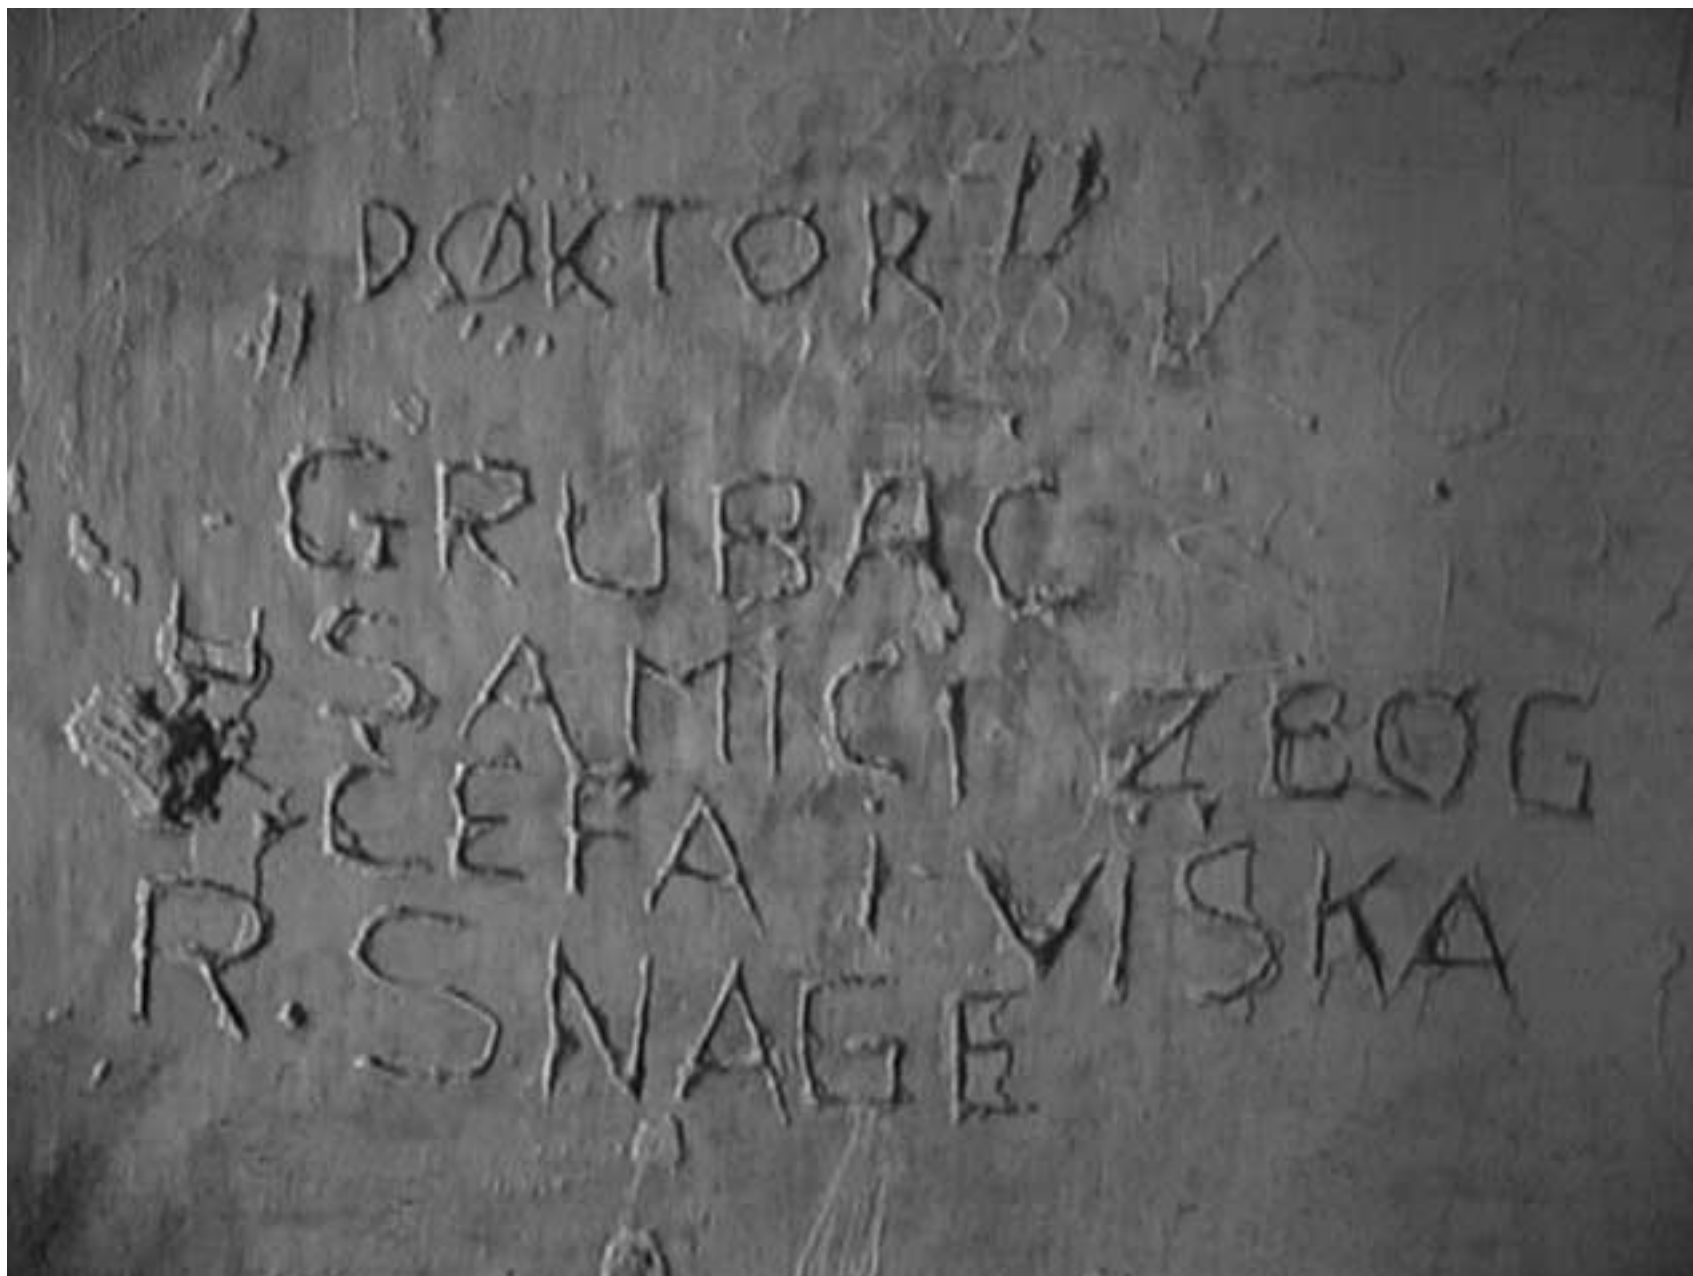 „DOKTOR”
GRUBAČ
U SAMICI ZBOG
ĆEFA I VIŠKA
R. SNAGE